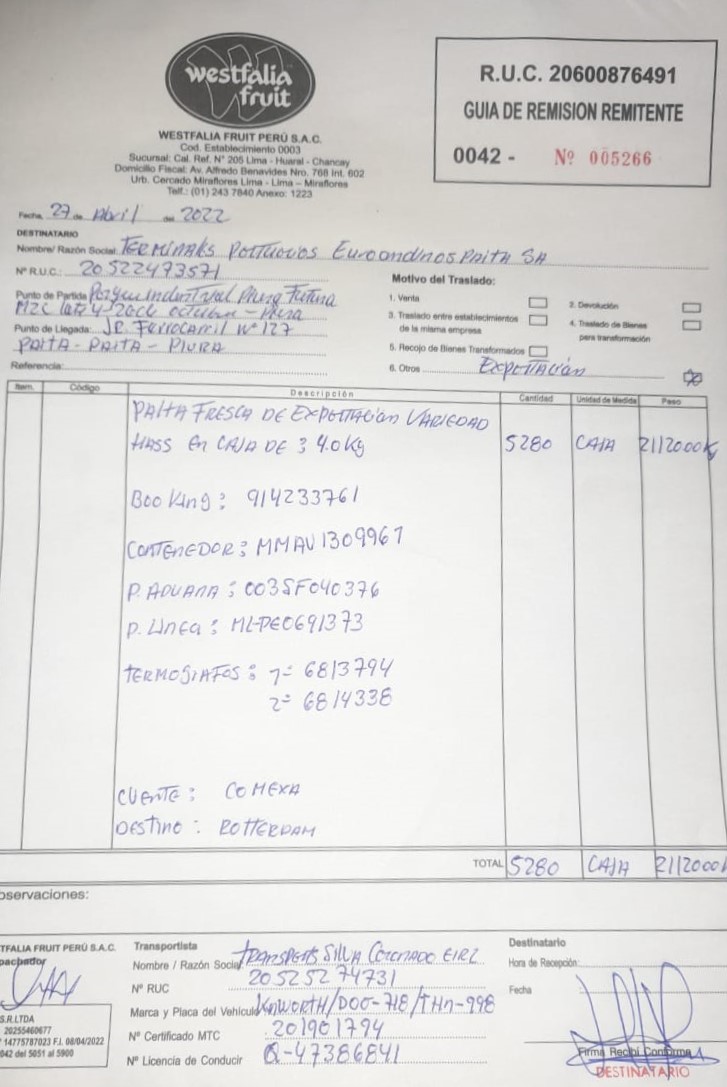 westfalia
fruit
WESTFALIA FRUIT PERÚ S.A.C.
Cod. Establecimiento 0003
Sucursal: Cal. Ref. N° 205 Lima - Huaral - Chancay
Domicilio Fiscal: Av. Alfredo Benavides Nro. 768 Int. 602
Urb. Cercado Miraflores Lima - Lima – Miraflores
Telf.: (01) 243 7840 Anexo: 1223
R.U.C. 20600876491
GUIA DE REMISION REMITENTE
0042 - Nº 005266
Fecha, 27 de Abril del 2022
DESTINATARIO
Nombre/ Razón Social: TERMINALES PORTUARIOS Euroandinos PAITA SA
N° R.U.C.: 20522473571
Punto de Partida Parque industrial Piura Futura
MZC Lote 4 - 26 octubre - Piura
Punto de Llegada: JR. Ferrocarril N° 127
PAITA - PAITA - PIURA
Referencia:
Motivo del Traslado:
1. Venta
2. Devolución
3. Traslado entre establecimientos
de la misma empresa
4. Traslado de Bienes
para transformación
5. Recojo de Bienes Transformados
6. Otros EXPORTACIÓN
Item. Código Descripción Cantidad Unidad de Medida Peso
PALTA FRESCA DE EXPORTACIÓN VARIEDAD
HASS EN CAJA DE : 4.0 Kg 5280 CAJA 21,12000 Kg
BOOKING : 914233761
CONTENEDOR : MMAU 1309967
P. ADUANA : 003SF040376
P. LINEA : ML-PE0691373
TERMOGRAFOS : 1- 6813794
2- 6814338
CLIENTE : COMEXA
DESTINO : ROTTERDAM
TOTAL 5280 CAJA 21,12000
bservaciones:
TFALIA FRUIT PERÚ S.A.C.
pachador
S.R.LTDA
20255460677
14775787023 F.I. 08/04/2022
042 del 5051 al 5900
Transportista
Nombre / Razón Social TRANSPORTES SILVA CORONADO EIRL
N° RUC 20525274731
Marca y Placa del Vehículo KNWORTH/DOO-718/THN-998
N° Certificado MTC 201901794
N° Licencia de Conducir Q-47386841
Destinatario
Hora de Recepción:
Fecha
Firma Recibí Conforme
DESTINATARIO